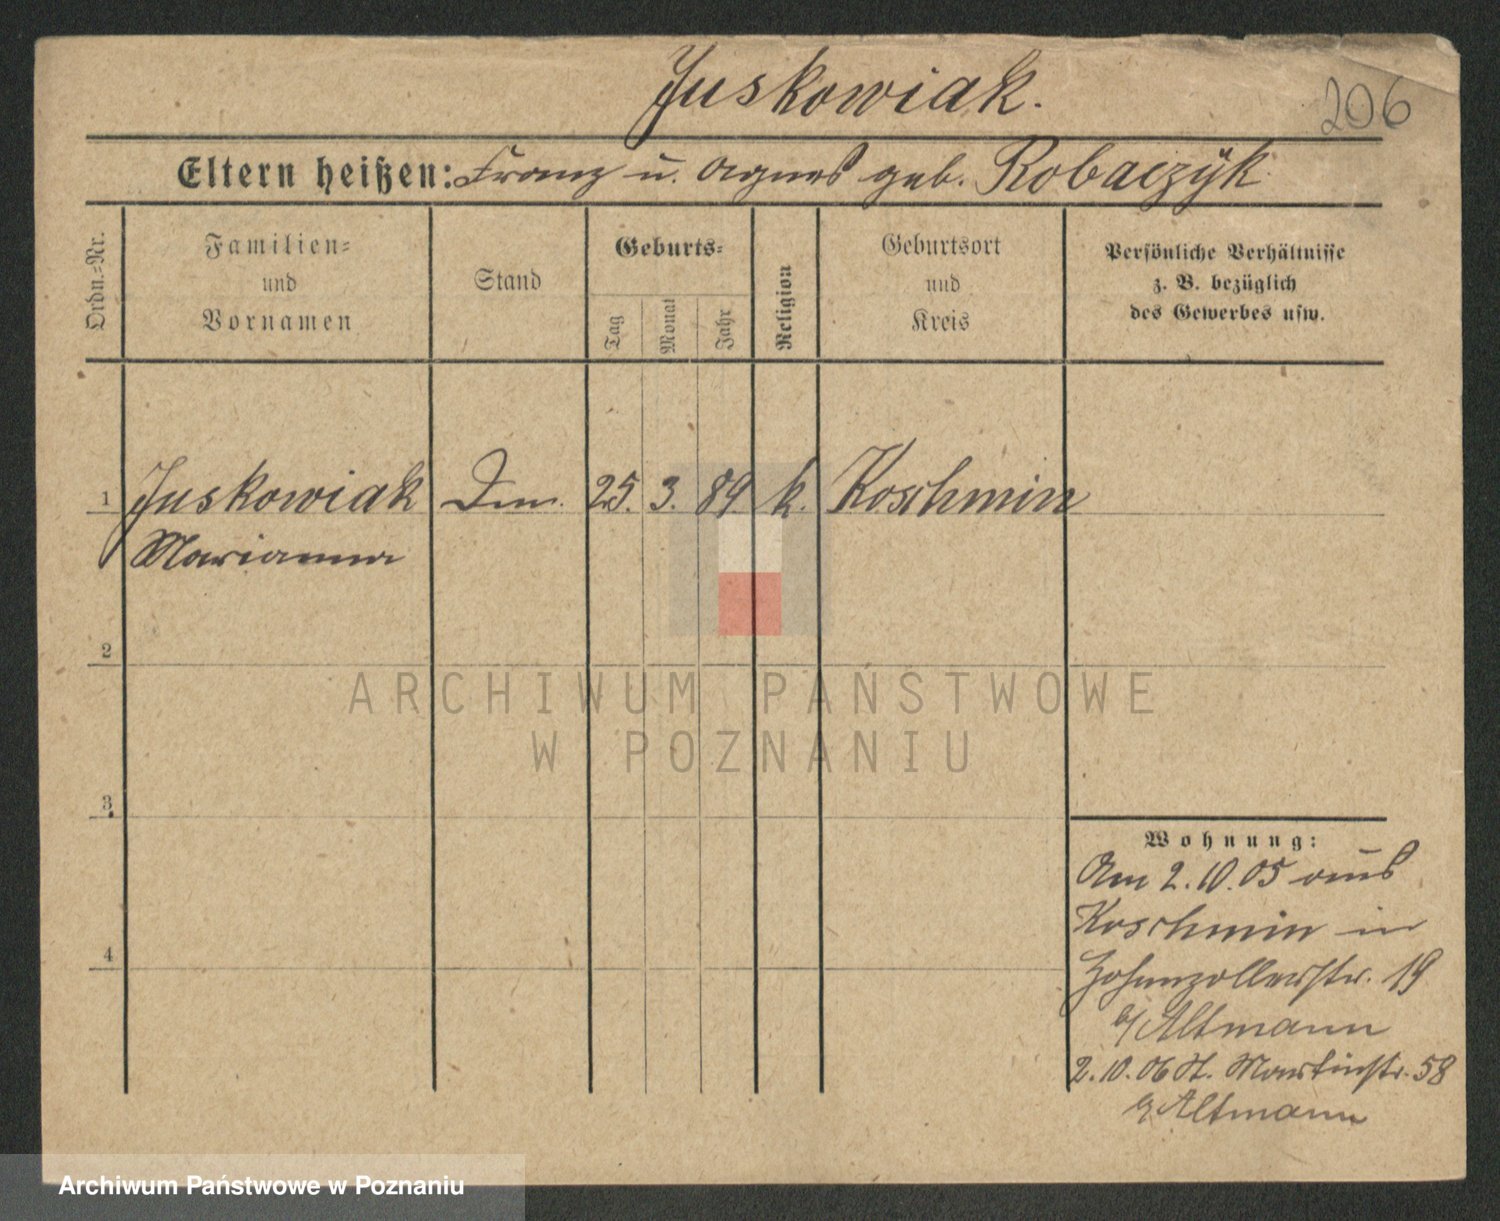 Juskowiak.
206
Eltern heißen: Franz u. Agnes geb. Robaczÿk
Ordn.=Nr.
Familien=
und
Vornamen
Stand
Geburts=
Tag
Monat
Jahr
Religion
Geburtsort
und
Kreis
Persönliche Verhältnisse
z. B. bezüglich
des Gewerbes usw.
1 Juskowiak 25. 3. 89 k. Koschmin
Marianna
2
3
4
Wohnung:
Am 2.10.05 aus
Koschmin in
Hohenzollerstr. 19
b/ Altmann
2.10.06 St. Martinstr. 58
b/ Altmann
ARCHIWUM PAŃSTWOWE
W POZNANIU
Archiwum Państwowe w Poznaniu